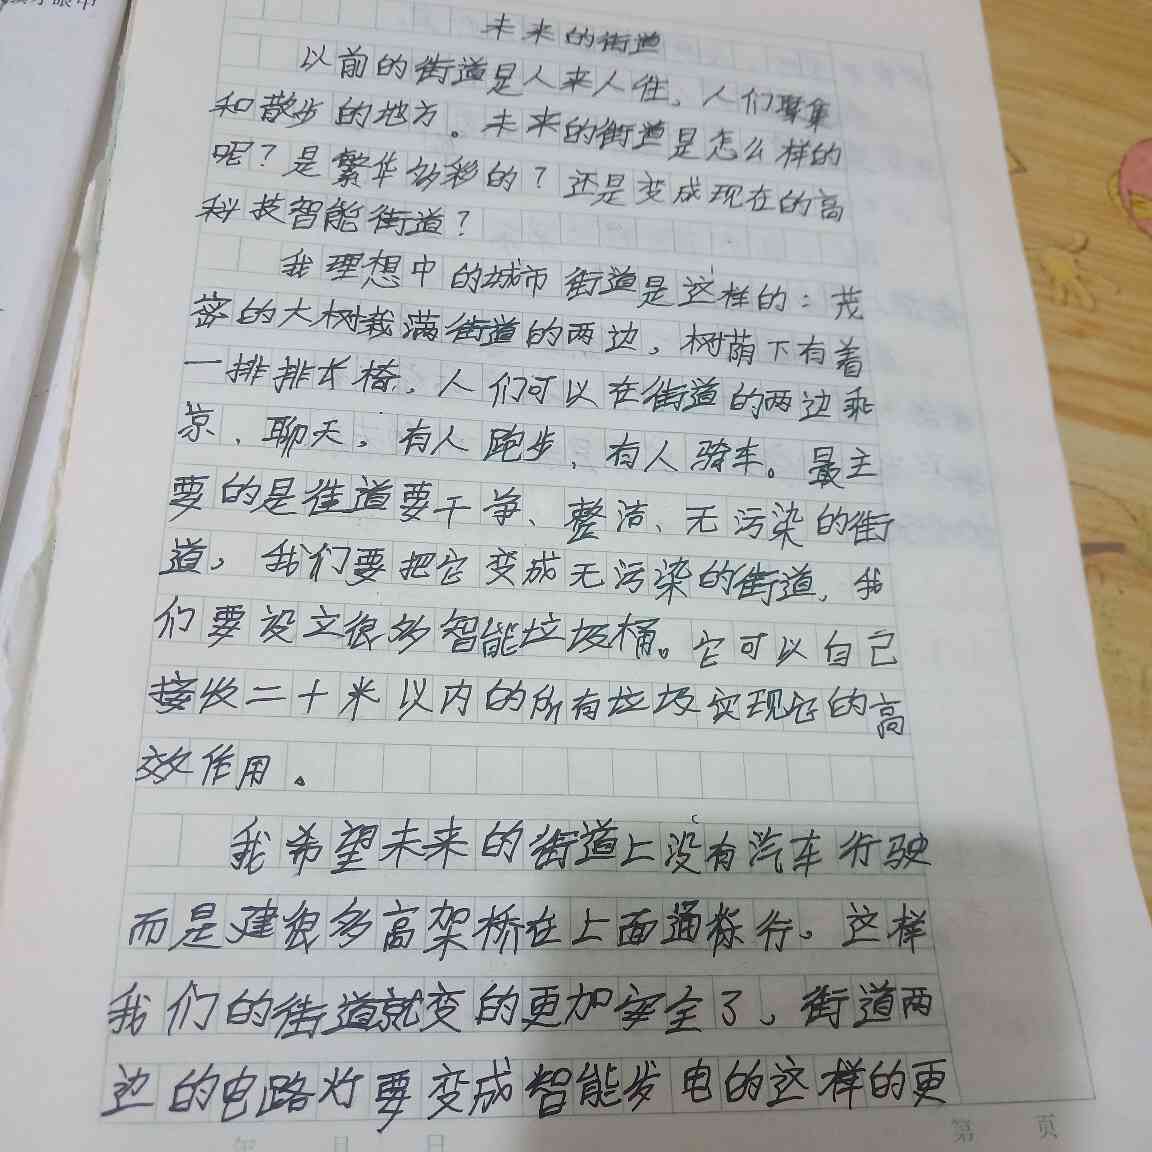 未来的街道
以前的街道是人来人往、人们聚集
和散步的地方。未来的街道是怎么样的
呢？是繁华多彩的？还是变成现在的高
科技智能街道？
我理想中的城市街道是这样的：茂
密的大树栽满街道的两边，树荫下有着
一排排长椅，人们可以在街道的两边乘
凉、聊天，有人跑步，有人骑车。最主
要的是街道要干争、整洁、无污染的街
道，我们要把它变成无污染的街道，我
们要设立很多智能垃圾桶。它可以自己
接收二十米以内的所有垃圾实现它的高
效作用。
我希望未来的街道上没有汽车行驶
而是建很多高架桥在上面通行。这样
我们的街道就变的更加安全了，街道两
边的电路灯要变成智能发电的这样的更
年 月 日
第 页